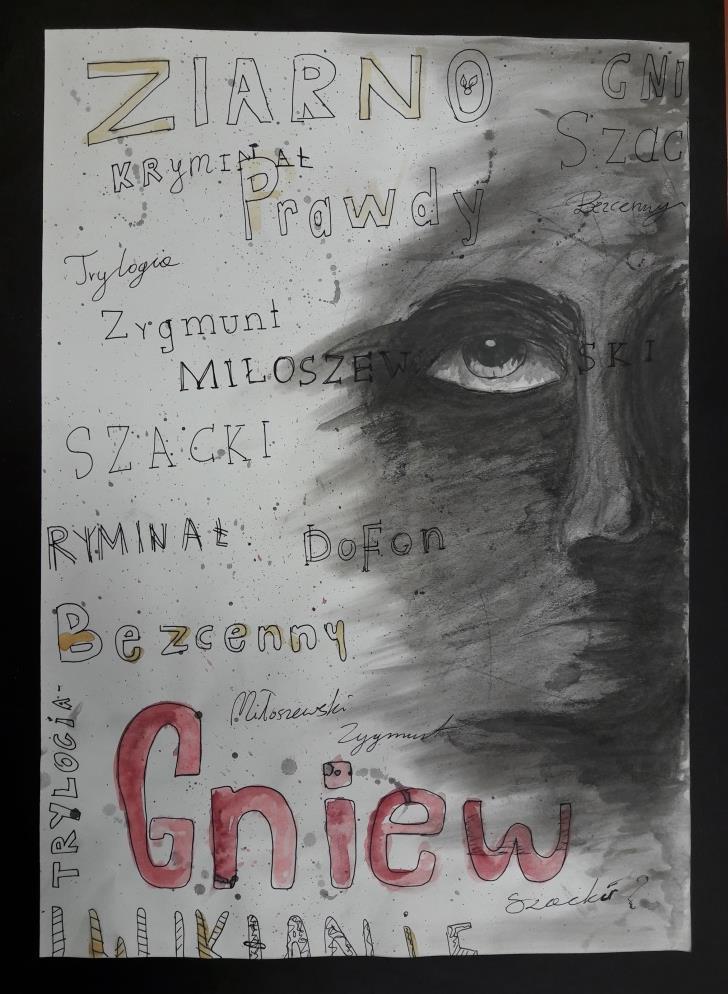 ZIARNO
GNI
KRYMINAŁ
Szac
Prawdy
Bezcenny
Trylogia
Zygmunt
MIŁOSZEWSKI
SZACKI
RYMINAŁ
DoFon
Bezcenny
Miłoszewski
Zygmunt
TRYLOGIA
Gniew
Szacki?
UWIKŁANIE